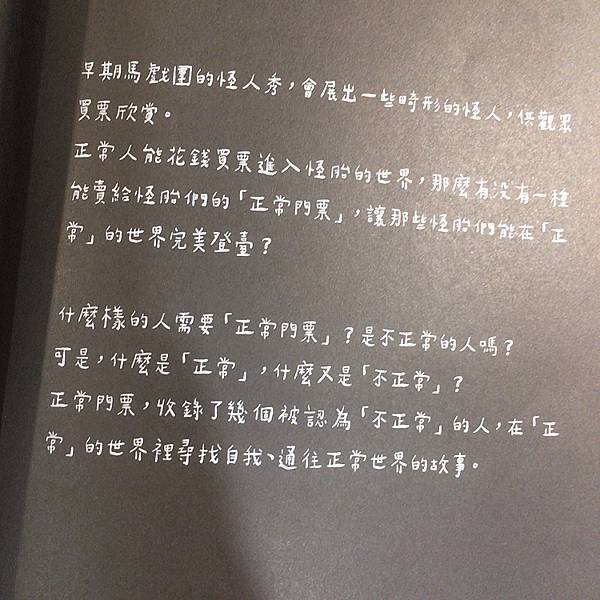 早期馬戲團的怪人秀，會展出一些畸形的怪人，供觀眾
買票欣賞。
正常人能花錢買票進入怪胎的世界，那麼有沒有一種
能賣給怪胎們的「正常門票」，讓那些怪胎們能在「正
常」的世界完美登臺？
什麼樣的人需要「正常門票」？是不正常的人嗎？
可是，什麼是「正常」，什麼又是「不正常」？
正常門票，收錄了幾個被認為「不正常」的人，在「正
常」的世界裡尋找自我、通往正常世界的故事。